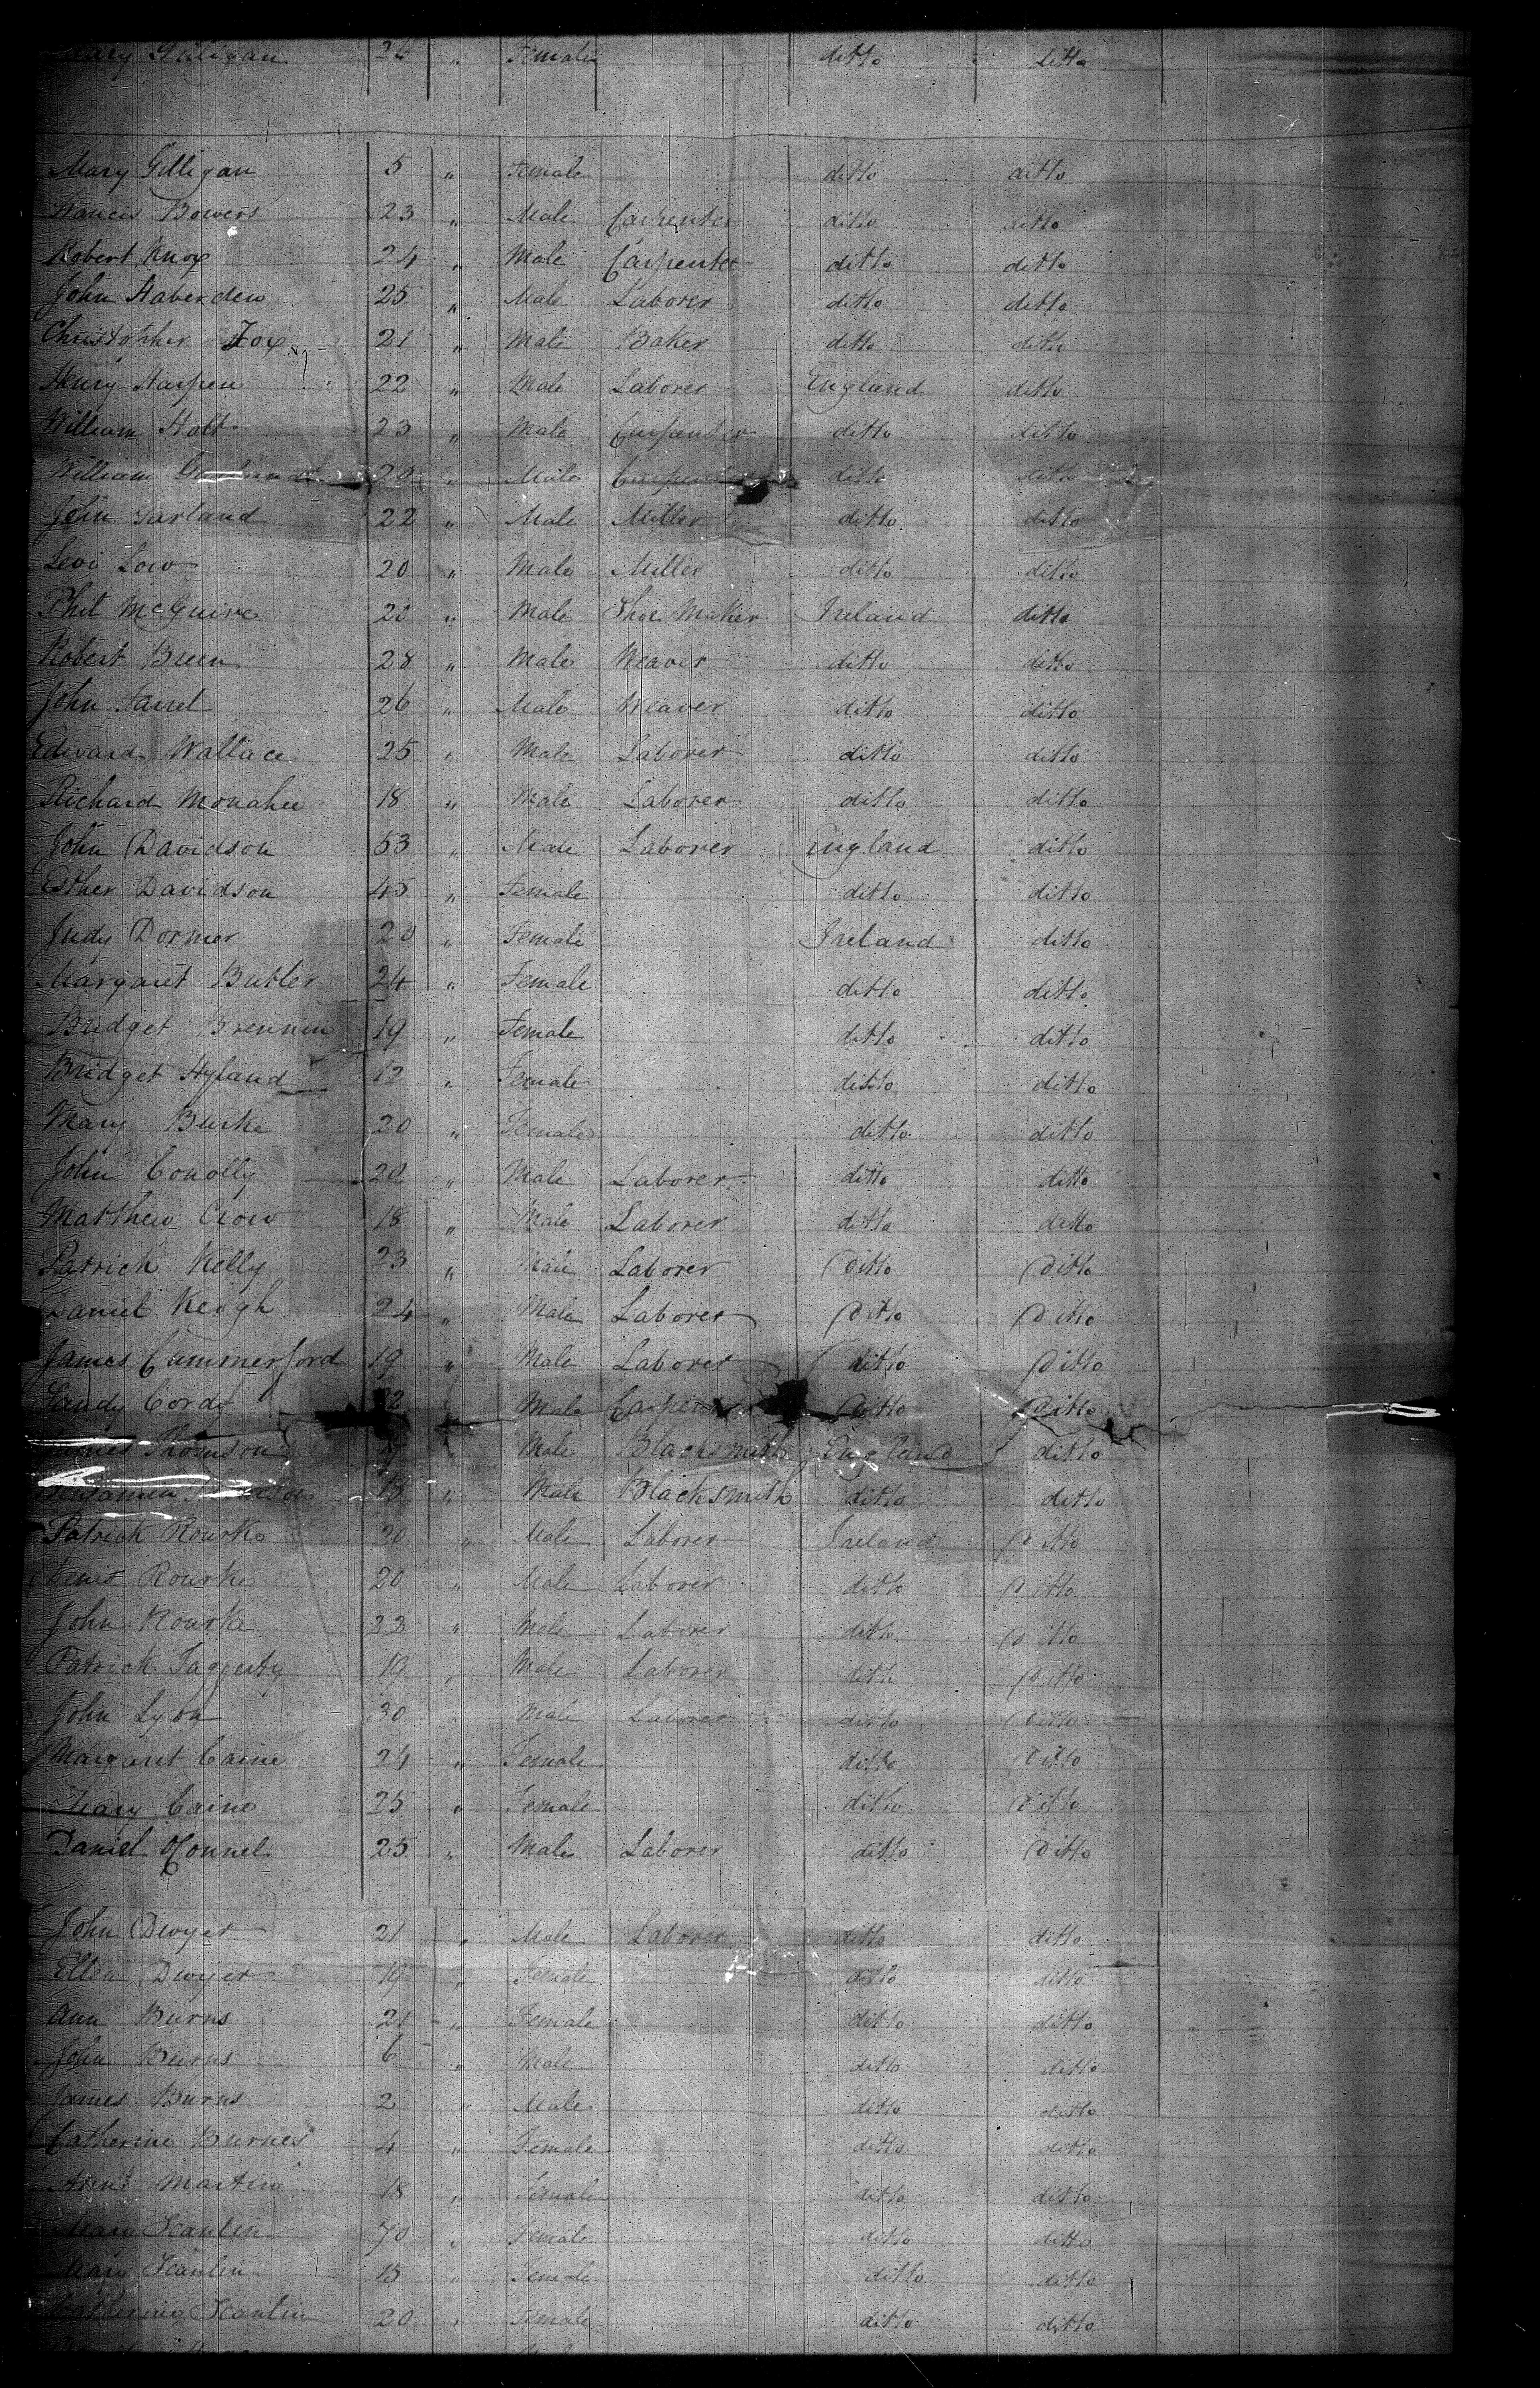 Mary Gilligan 24 " Female ditto ditto
Mary Gilligan 5 " Female ditto ditto
Francis Bowers 23 " Male Carpenter ditto ditto
Robert Knox 24 " Male Carpenter ditto ditto
John Haberden 25 " Male Laborer ditto ditto
Christopher Fox 21 " Male Baker ditto ditto
Henry Harpen 22 " Male Laborer England ditto
William Holt 23 " Male Carpenter ditto ditto
William 20 " Male Carpenter ditto ditto
John Garland 22 " Male Miller ditto ditto
Levi Low 20 " Male Miller ditto ditto
Phil McGuire 20 " Male Shoe Maker Ireland ditto
Robert Breen 28 " Male Weaver ditto ditto
John Farrel 26 " Male Weaver ditto ditto
Edward Wallace 25 " Male Laborer ditto ditto
Richard Monahee 18 " Male Laborer ditto ditto
John Davidson 53 " Male Laborer England ditto
Esther Davidson 45 " Female ditto ditto
Judy Dormer 20 " Female Ireland ditto
Margaret Butler 24 " Female ditto ditto
Bridget Brennin 19 " Female ditto ditto
Bridget Hyland 12 " Female ditto ditto
Mary Burke 20 " Female ditto ditto
John Conolly 20 " Male Laborer ditto ditto
Matthew Crow 18 " Male Laborer ditto ditto
Patrick Kelly 23 " Male Laborer Ditto Ditto
Daniel Keogh 24 " Male Laborer Ditto Ditto
James Cummerford 19 " Male Laborer ditto Ditto
Sandy Cordy 22 " Male Carpenter Ditto Ditto
James Thomson " Male Blacksmith England ditto
Benjamin 18 " Male Blacksmith ditto ditto
Patrick Rourke 20 " Male Laborer Ireland Ditto
Denis Rourke 20 " Male Laborer ditto Ditto
John Rourke 22 " Male Laborer ditto Ditto
Patrick Faggerty 19 " Male Laborer ditto Ditto
John Lyon 30 " Male Laborer ditto Ditto
Margaret Caine 24 " Female ditto Ditto
Mary Caine 25 " Female ditto Ditto
Daniel OConnel 25 " Male Laborer ditto Ditto
John Dwyer 21 " Male Laborer ditto ditto
Ellen Dwyer 19 " Female ditto ditto
Ann Burns 21 " Female ditto ditto
John Burns 6 " Male ditto ditto
James Burns 2 " Male ditto ditto
Catherine Burnes 4 " Female ditto ditto
Ann Martin 18 " Female ditto ditto
Mary Scanlin 70 " Female ditto ditto
Mary Scanlin 15 " Female ditto ditto
Catherine Scanlin 20 " Female ditto ditto